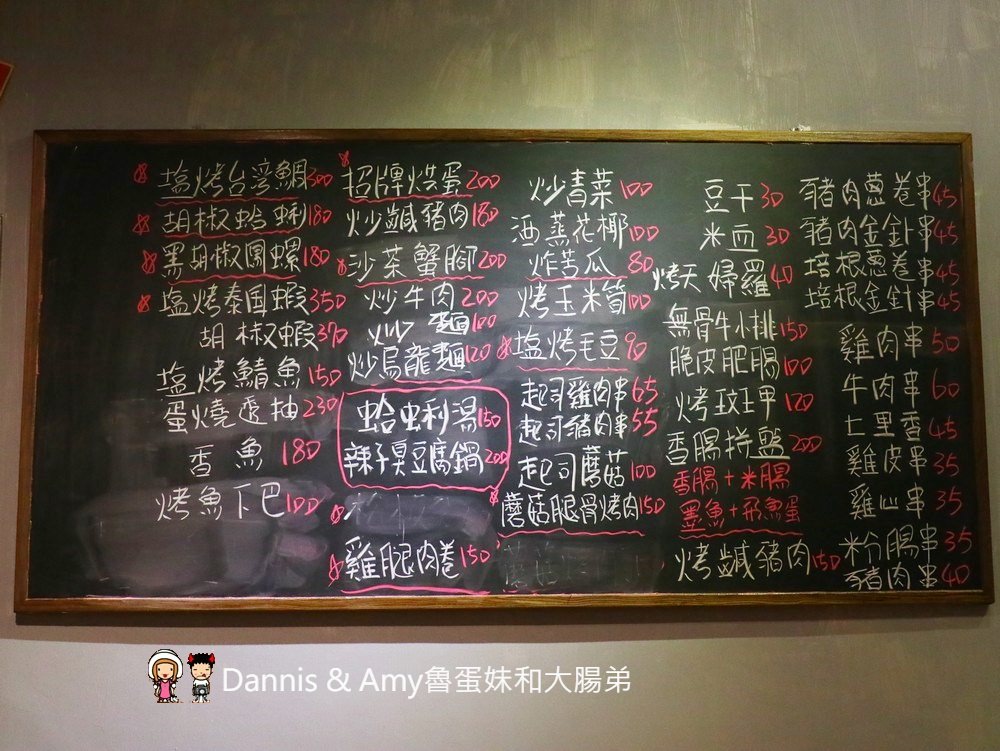 塩烤台湾鯛300
胡椒蛤蜊180
黑胡椒鳳螺180
塩烤泰国蝦350
胡椒蝦370
塩烤鯖魚150
蛋燒透抽230
香魚180
烤魚下巴100
招牌烘蛋200
炒鹹豬肉180
沙茶蟹腳200
炒牛肉200
炒麵100
炒烏龍麵120
蛤蜊湯150
辣子臭豆腐鍋200
雞腿肉卷150
炒青菜100
酒蒸花椰100
炸苦瓜80
烤玉米筍100
塩烤毛豆90
起司雞肉串65
起司豬肉串55
起司蘑菇100
蘑菇腿骨烤肉150
豆干30
米血30
烤天婦羅40
無骨牛小排150
脆皮肥腸100
烤玟玾120
香腸拼盤200
香腸+米腸
墨魚+飛魚蛋
烤鹹豬肉150
豬肉蔥卷串45
豬肉金針串45
培根蔥卷串45
培根金針串45
雞肉串50
牛肉串60
七里香45
雞皮串35
雞心串35
米粉腸串35
豬肉串40
Dannis & Amy魯蛋妹和大腸弟